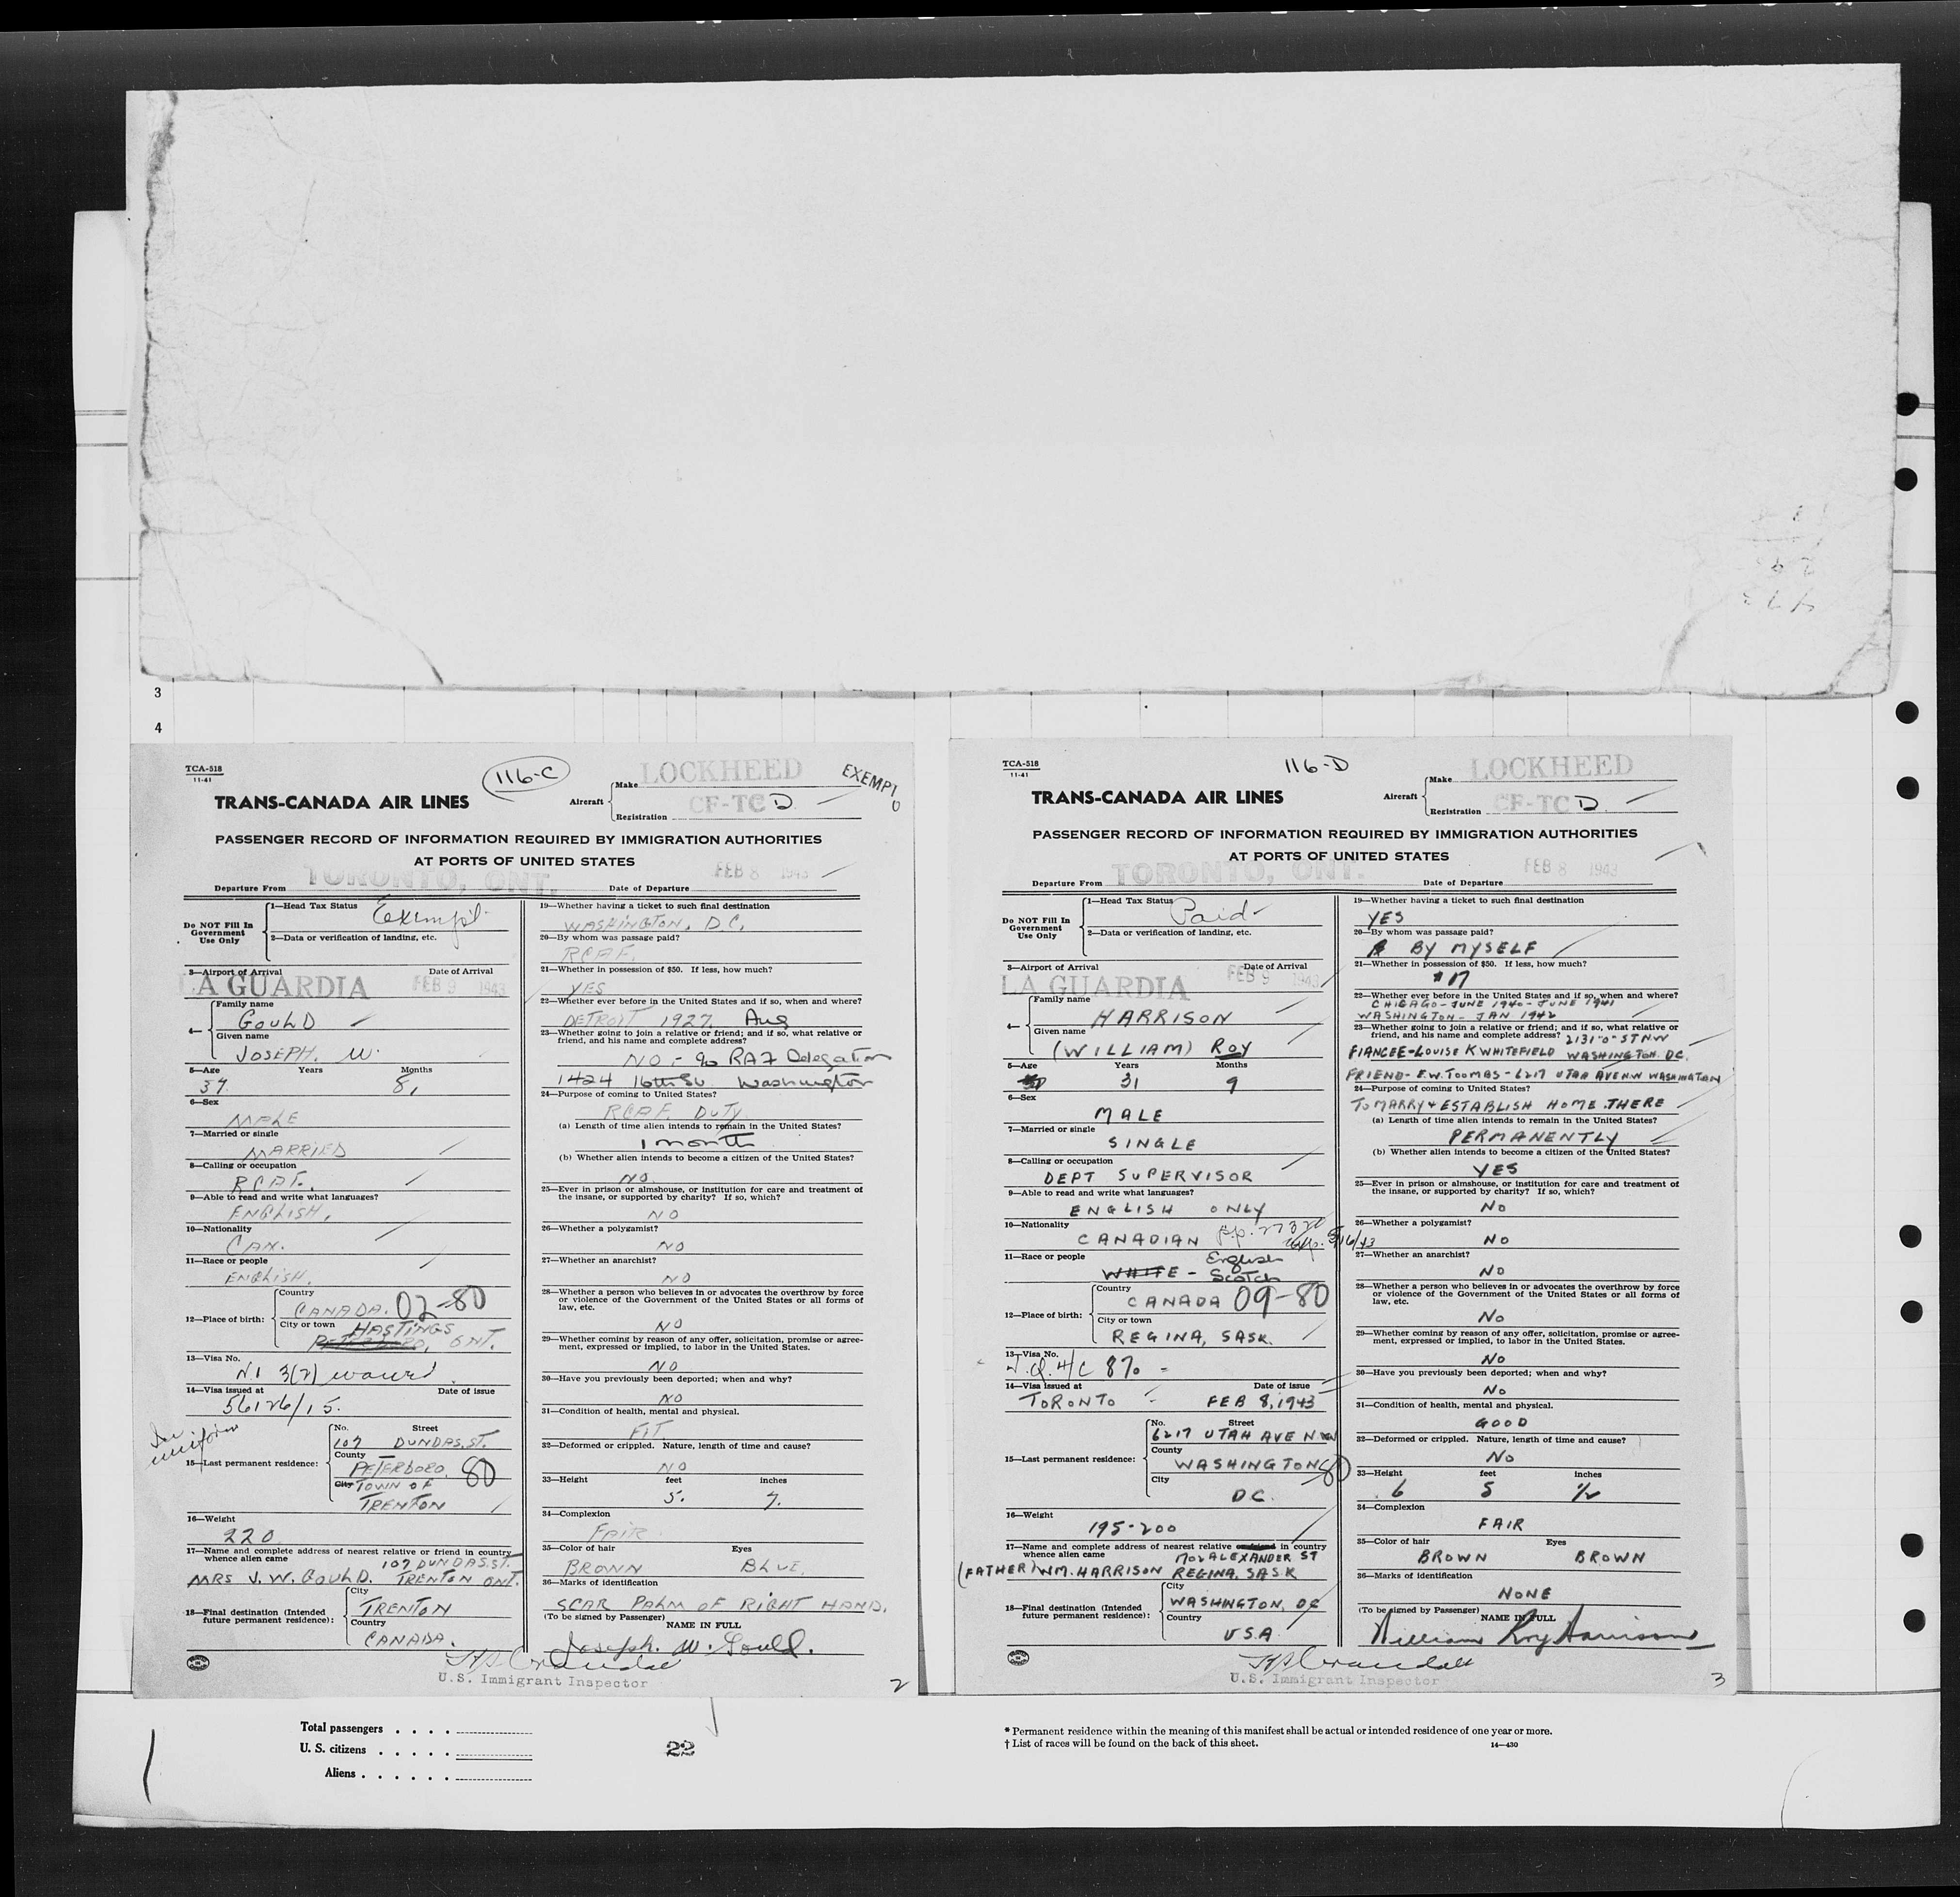 3
4
TCA-518
11-41
116-C
LOCKHEED
EXEMPT
TRANS-CANADA AIR LINES
Aircraft
Make
CF-TC D
Registration
PASSENGER RECORD OF INFORMATION REQUIRED BY IMMIGRATION AUTHORITIES
AT PORTS OF UNITED STATES
Departure From TORONTO, ONT.
Date of Departure FEB 8 1943
Do NOT Fill In Government Use Only
1—Head Tax Status Exempt
2—Data or verification of landing, etc.
3—Airport of Arrival Date of Arrival
LA GUARDIA FEB 9 1943
4—
Family name
GOULD
Given name
JOSEPH. W.
5—Age Years Months
37. 8,
6—Sex
MALE
7—Married or single
MARRIED
8—Calling or occupation
RCAF.
9—Able to read and write what languages?
ENGLISH,
10—Nationality
CAN.
11—Race or people
ENGLISH.
12—Place of birth:
Country
CANADA. 02-80
City or town HASTINGS
ONT.
13—Visa No.
3(2)
14—Visa issued at Date of issue
56126/15.
In uniform
15—Last permanent residence:
No. Street
107 DUNDAS. ST.
County
PETERBORO. 80
City TOWN OF
TRENTON
16—Weight
220
17—Name and complete address of nearest relative or friend in country
whence alien came 107 DUNDAS. ST.
MRS J. W. GOULD. TRENTON ONT.
18—Final destination (Intended
future permanent residence):
City
TRENTON
Country
CANADA.
19—Whether having a ticket to such final destination
WASHINGTON, D.C.
20—By whom was passage paid?
RCAF.
21—Whether in possession of $50. If less, how much?
YES
22—Whether ever before in the United States and if so, when and where?
DETROIT 1927. Aug
23—Whether going to join a relative or friend; and if so, what relative or
friend, and his name and complete address?
NO - c/o RAF Delegation
1424 16th St. Washington
24—Purpose of coming to United States?
RCAF DUTY
(a) Length of time alien intends to remain in the United States?
1 month
(b) Whether alien intends to become a citizen of the United States?
NO.
25—Ever in prison or almshouse, or institution for care and treatment of
the insane, or supported by charity? If so, which?
NO
26—Whether a polygamist?
NO
27—Whether an anarchist?
NO
28—Whether a person who believes in or advocates the overthrow by force
or violence of the Government of the United States or all forms of
law, etc.
NO
29—Whether coming by reason of any offer, solicitation, promise or agree-
ment, expressed or implied, to labor in the United States.
NO
30—Have you previously been deported; when and why?
NO
31—Condition of health, mental and physical.
FIT
32—Deformed or crippled. Nature, length of time and cause?
NO
33—Height feet inches
5. 7.
34—Complexion
FAIR
35—Color of hair Eyes
BROWN BLUE.
36—Marks of identification
SCAR PALM OF RIGHT HAND.
(To be signed by Passenger)
NAME IN FULL
Joseph. W. Gould.
U.S. Immigrant Inspector
2
TCA-518
11-41
116-D
LOCKHEED
TRANS-CANADA AIR LINES
Aircraft
Make
CF-TC D
Registration
PASSENGER RECORD OF INFORMATION REQUIRED BY IMMIGRATION AUTHORITIES
AT PORTS OF UNITED STATES
Departure From TORONTO, ONT.
Date of Departure FEB 8 1943
Do NOT Fill In Government Use Only
1—Head Tax Status Paid
2—Data or verification of landing, etc.
3—Airport of Arrival Date of Arrival
LA GUARDIA FEB 9 1943
4—
Family name
HARRISON
Given name
(WILLIAM) ROY
5—Age Years Months
31 9
6—Sex
MALE
7—Married or single
SINGLE
8—Calling or occupation
DEPT SUPERVISOR
9—Able to read and write what languages?
ENGLISH ONLY
10—Nationality
CANADIAN
11—Race or people English
WHITE - Scotch
12—Place of birth:
Country
CANADA 09-80
City or town
REGINA, SASK.
13—Visa No.
870
14—Visa issued at Date of issue
TORONTO FEB 8, 1943
15—Last permanent residence:
No. Street
6217 UTAH AVE NW
County
WASHINGTON 80
City
DC.
16—Weight
195-200
17—Name and complete address of nearest relative in country
whence alien came ALEXANDER ST
(FATHER) WM. HARRISON REGINA. SASK
18—Final destination (Intended
future permanent residence):
City
WASHINGTON, DC
Country
USA
19—Whether having a ticket to such final destination
YES
20—By whom was passage paid?
BY MYSELF
21—Whether in possession of $50. If less, how much?
$17
22—Whether ever before in the United States and if so, when and where?
CHICAGO - JUNE 1940 - JUNE 1941
WASHINGTON - JAN 1942
23—Whether going to join a relative or friend; and if so, what relative or
friend, and his name and complete address? 2131 "O" ST NW
FIANCEE - LOUISE K WHITEFIELD WASHINGTON. DC.
FRIEND - E.W. TOOMBS - 6217 UTAH AVE N.W WASHINGTON
24—Purpose of coming to United States?
TO MARRY & ESTABLISH HOME THERE
(a) Length of time alien intends to remain in the United States?
PERMANENTLY
(b) Whether alien intends to become a citizen of the United States?
YES
25—Ever in prison or almshouse, or institution for care and treatment of
the insane, or supported by charity? If so, which?
NO
26—Whether a polygamist?
NO
27—Whether an anarchist?
NO
28—Whether a person who believes in or advocates the overthrow by force
or violence of the Government of the United States or all forms of
law, etc.
NO
29—Whether coming by reason of any offer, solicitation, promise or agree-
ment, expressed or implied, to labor in the United States.
NO
30—Have you previously been deported; when and why?
NO
31—Condition of health, mental and physical.
GOOD
32—Deformed or crippled. Nature, length of time and cause?
NO
33—Height feet inches
6 5 1/2
34—Complexion
FAIR
35—Color of hair Eyes
BROWN BROWN
36—Marks of identification
NONE
(To be signed by Passenger)
NAME IN FULL
William Roy Harrison
U.S. Immigrant Inspector
3
Total passengers . . . .
U. S. citizens . . . . .
Aliens . . . . . .
22
* Permanent residence within the meaning of this manifest shall be actual or intended residence of one year or more.
† List of races will be found on the back of this sheet.
14—430